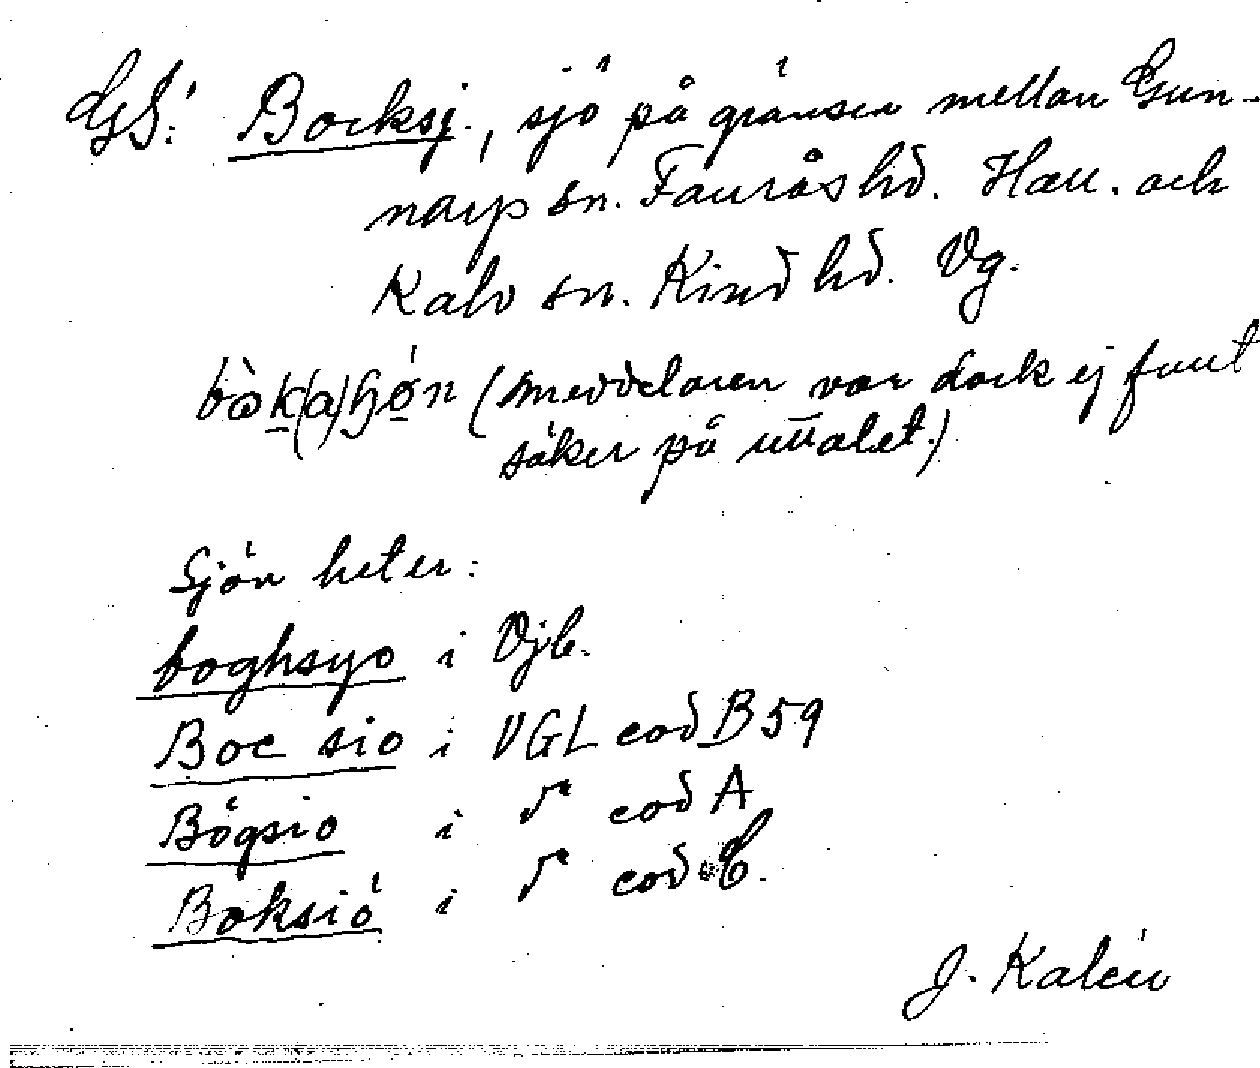 GS! Bocksj., sjö på gränsen mellan Gun-
narp sn. Faurås hd. Hall. och
Kalv sn. Kind hd. Vg.
(meddelaren var dock ej fullt
säker på uttalet.)
Sjön heter:
boghsyo i Ojb.
Boc sio i VGL cod B 59
Bögsio i cod A
Boksiö i cod C.
J. Kalén